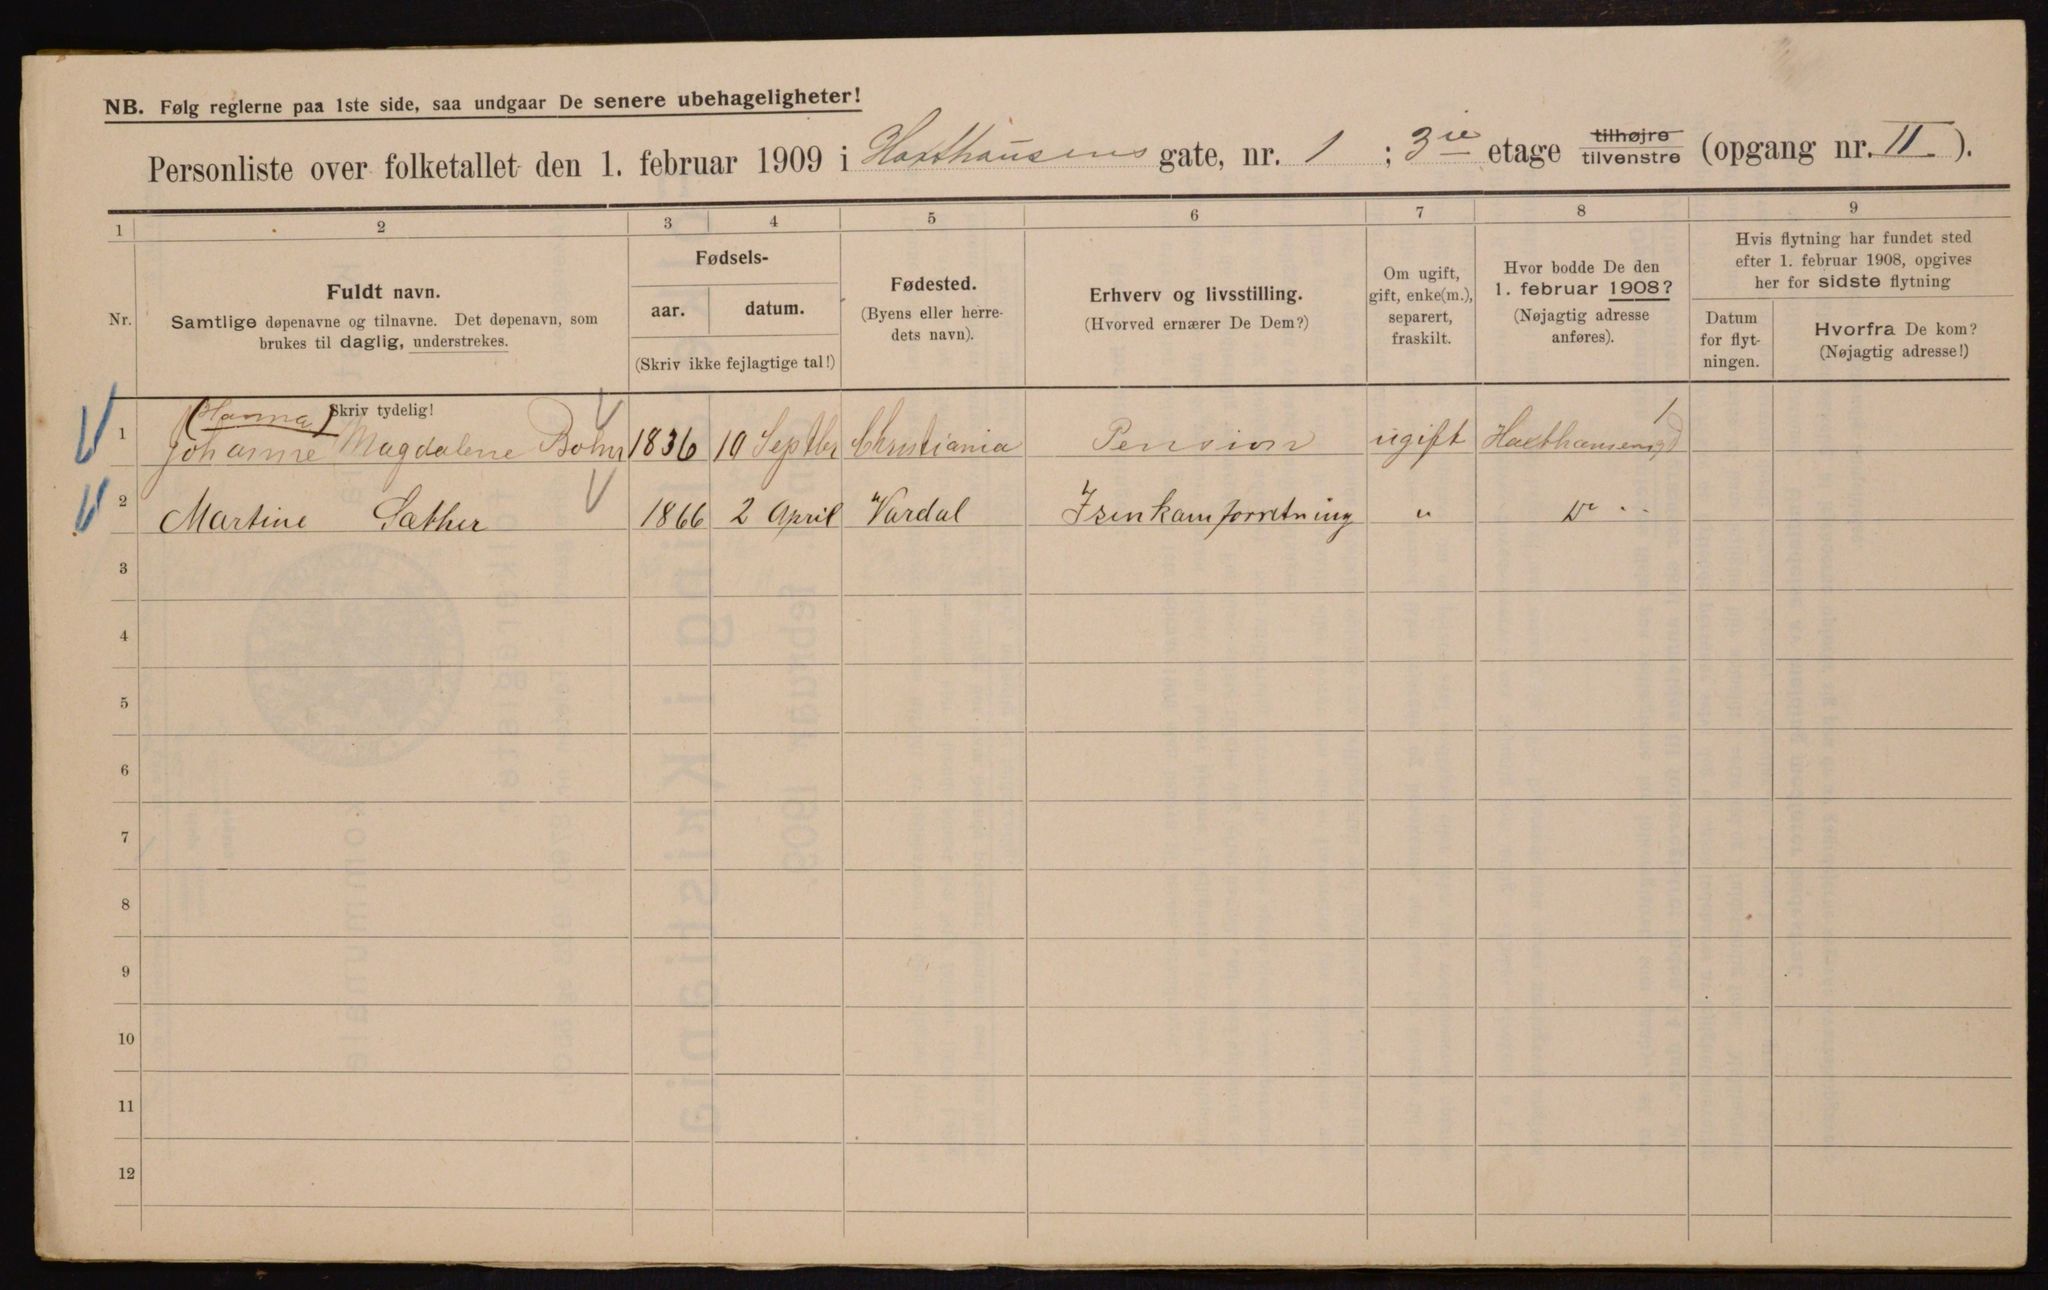 NB. Følg reglerne paa 1ste side, saa undgaar De senere ubehageligheter!
Personliste over folketallet den 1. februar 1909 i Haxthausens gate, nr. 1 ; 3die etage tilhøjre tilvenstre (opgang nr. II ).
1 2 3 4 5 6 7 8 9
Nr.
Fuldt navn.
Samtlige døpenavne og tilnavne. Det døpenavn, som
brukes til daglig, understrekes.
Fødsels-
aar. datum.
(Skriv ikke fejlagtige tal!)
Fødested.
(Byens eller herre-
dets navn).
Erhverv og livsstilling.
(Hvorved ernærer De Dem?)
Om ugift,
gift, enke(m.),
separert,
fraskilt.
Hvor bodde De den
1. februar 1908?
(Nøjagtig adresse
anføres).
Hvis flytning har fundet sted
efter 1. februar 1908, opgives
her for sidste flytning
Datum
for flyt-
ningen.
Hvorfra De kom?
(Nøjagtig adresse!)
(Hanna) Skriv tydelig!
1 Johanne Magdalene 1836 10 Septber Christiania Pension ugift Haxthausensgd 1
2 Martine Sæther 1866 2 April Vardal " Do "
3
4
5
6
7
8
9
10
11
12